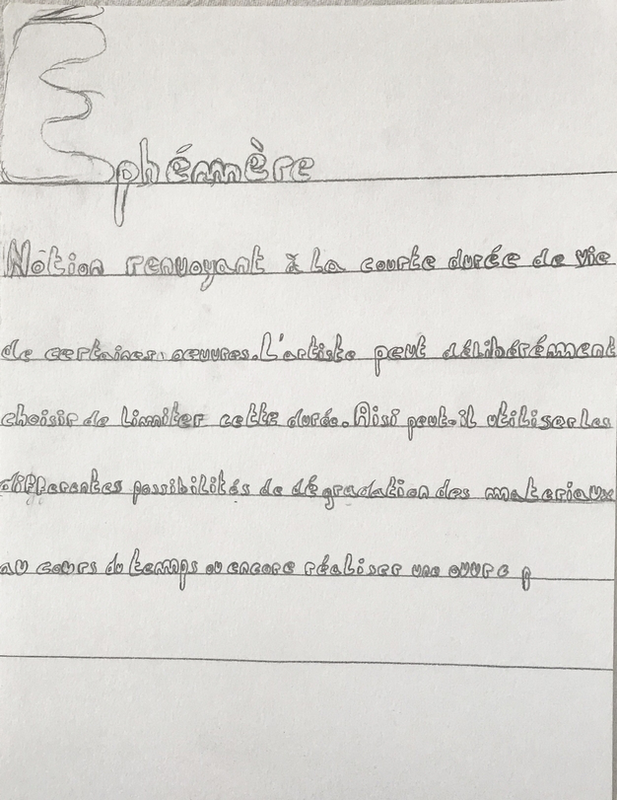 Ephémère
Nôtion renvoyant à la courte durée de vie
de certaines oeuvres. L'artiste peut délibérément
choisir de limiter cette durée. Aisi peut-il utiliser les
differentes possibilités de dégradation des materiaux
au cours du temps ou encore réaliser une ouvre p